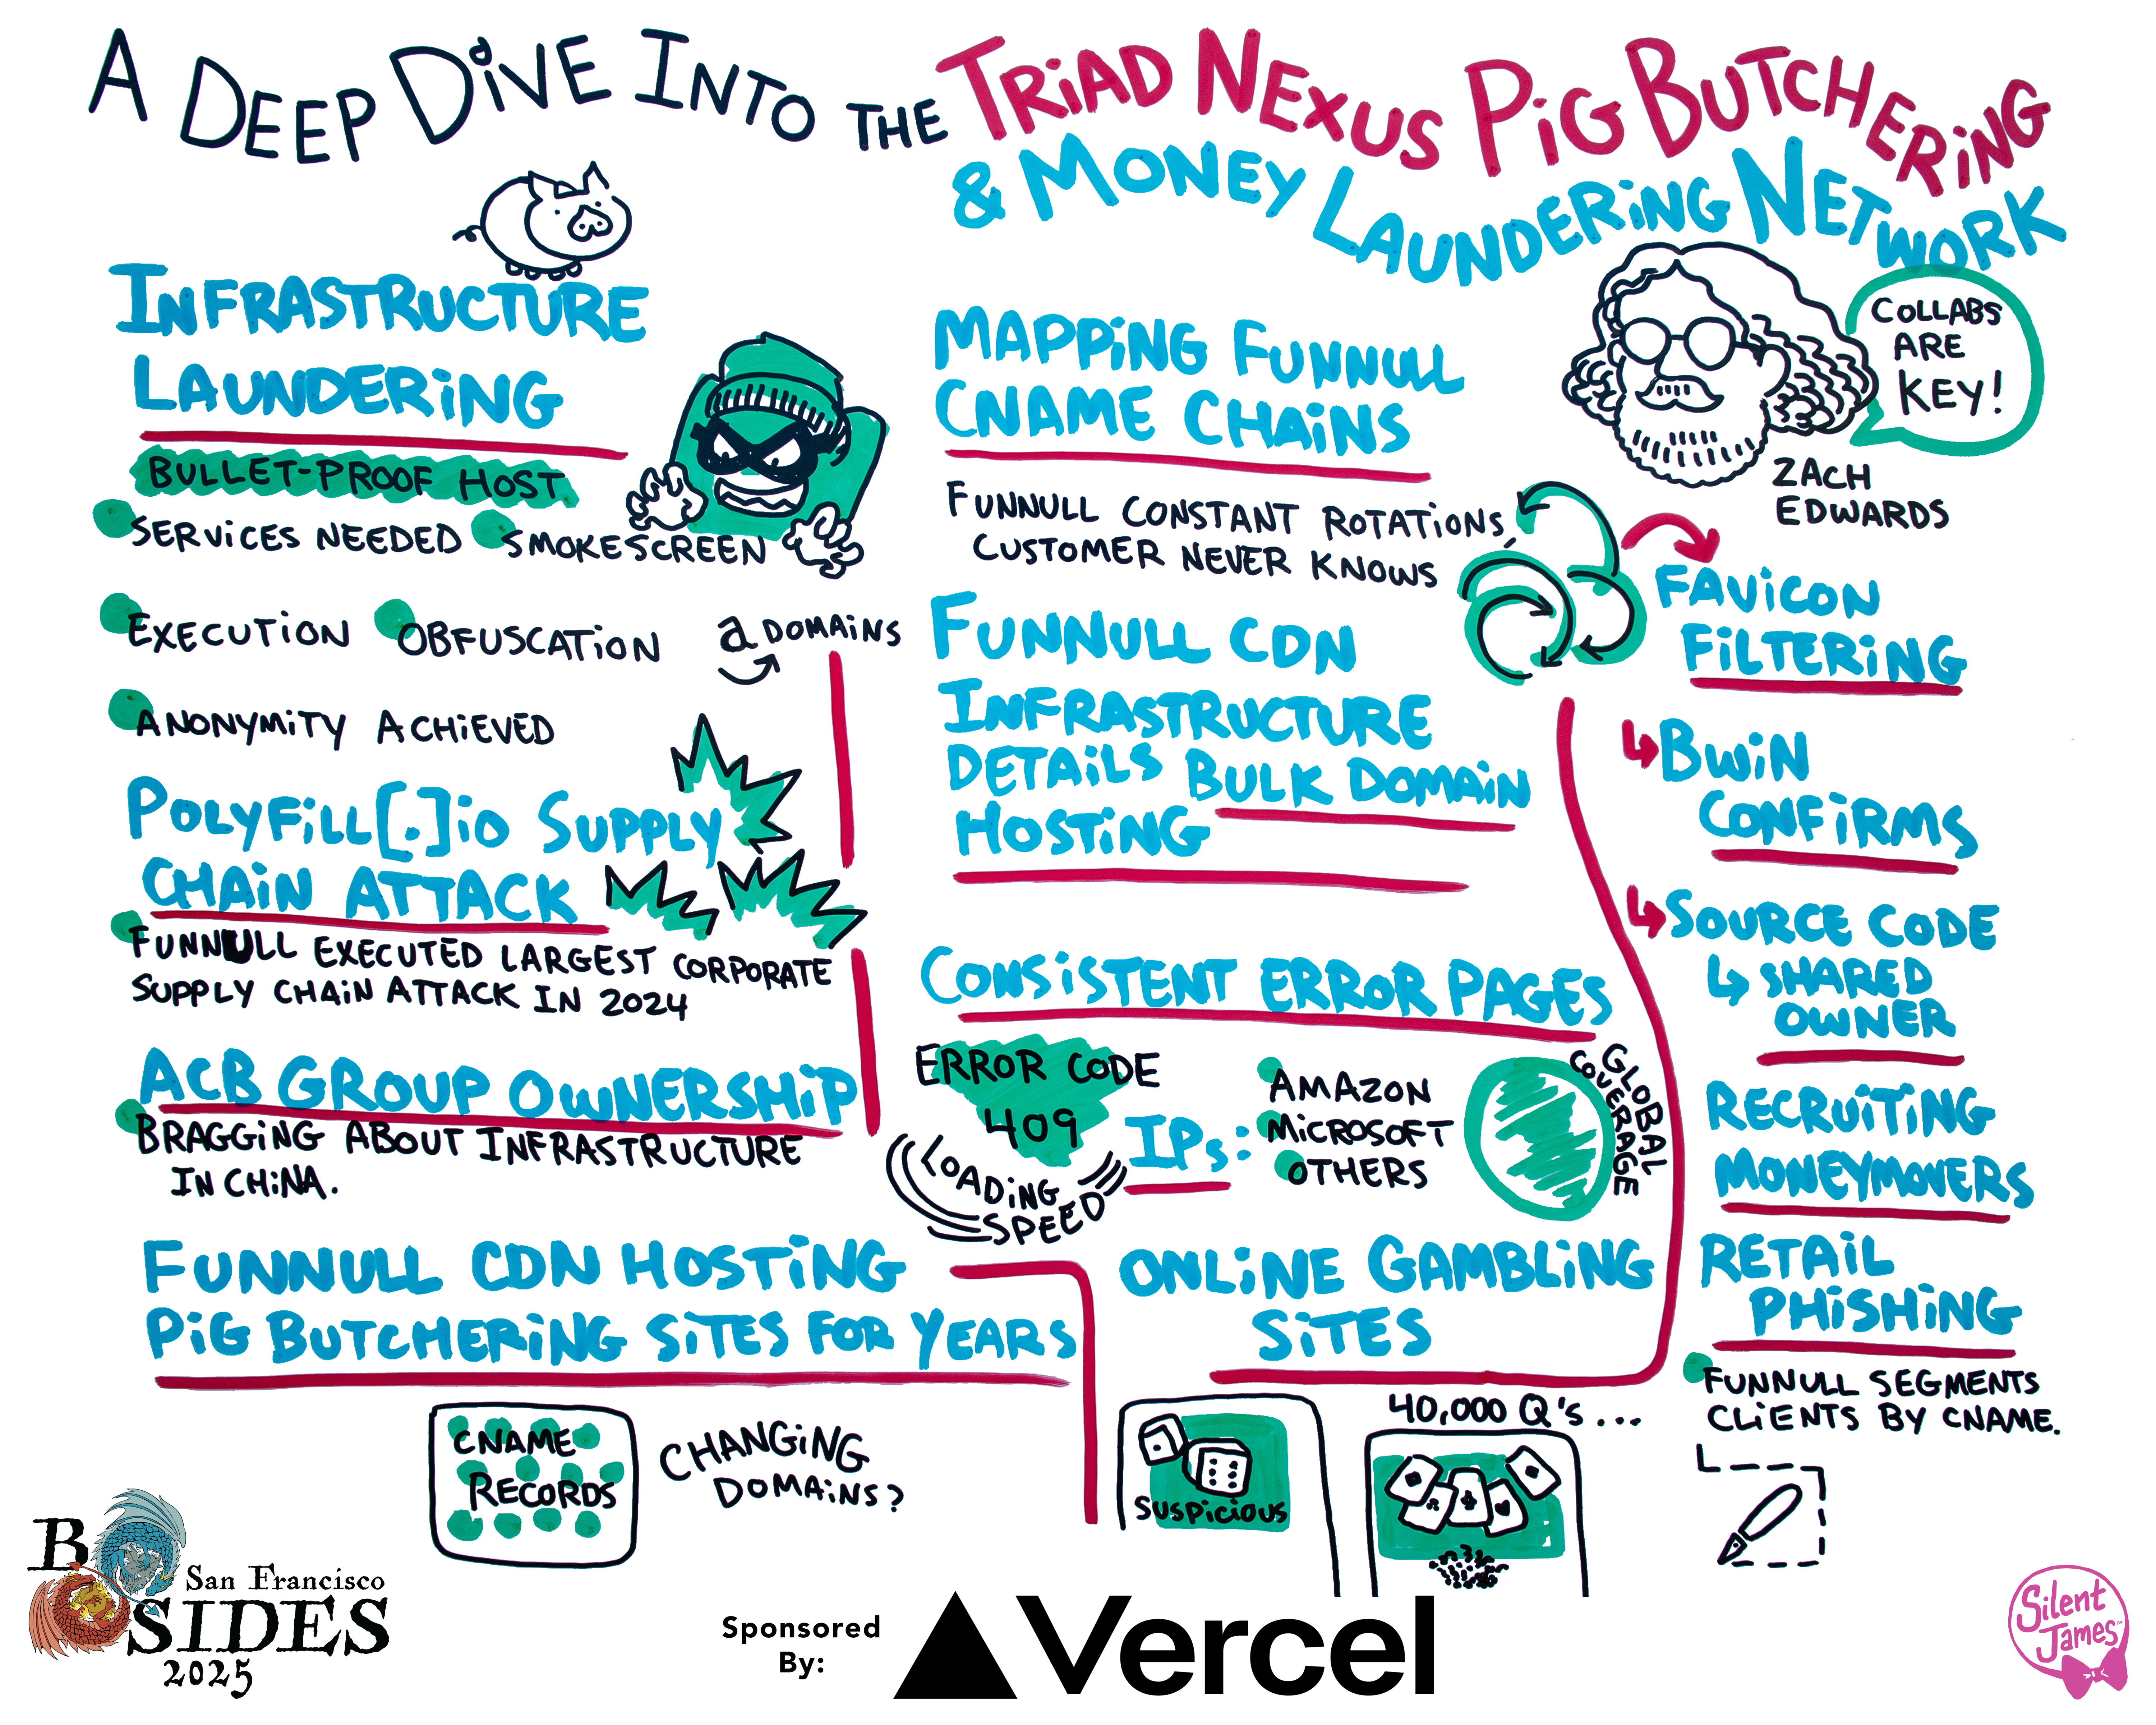 A DEEP DIVE INTO THE TRIAD NEXUS PIG BUTCHERING
& MONEY LAUNDERING NETWORK
INFRASTRUCTURE
LAUNDERING
BULLET-PROOF HOST
SERVICES NEEDED
SMOKESCREEN
EXECUTION
OBFUSCATION
a DOMAINS
ANONYMITY ACHIEVED
POLYFILL[.]io SUPPLY
CHAIN ATTACK
FUNNULL EXECUTED LARGEST CORPORATE
SUPPLY CHAIN ATTACK IN 2024
ACB GROUP OWNERSHIP
BRAGGING ABOUT INFRASTRUCTURE
IN CHINA.
FUNNULL CDN HOSTING
PIG BUTCHERING SITES FOR YEARS
CNAME
RECORDS
CHANGING
DOMAINS?
MAPPING FUNNULL
CNAME CHAINS
FUNNULL CONSTANT ROTATIONS,
CUSTOMER NEVER KNOWS
FUNNULL CDN
INFRASTRUCTURE
DETAILS BULK DOMAIN
HOSTING
CONSISTENT ERROR PAGES
ERROR CODE
409
LOADING
SPEED
IPs:
AMAZON
MICROSOFT
OTHERS
GLOBAL
COVERAGE
ONLINE GAMBLING
SITES
SUSPICIOUS
40,000 Q'S...
COLLABS
ARE
KEY!
ZACH
EDWARDS
FAVICON
FILTERING
BWIN
CONFIRMS
SOURCE CODE
SHARED
OWNER
RECRUITING
MONEYMOVERS
RETAIL
PHISHING
FUNNULL SEGMENTS
CLIENTS BY CNAME.
BSIDES
San Francisco
2025
Sponsored
By:
Vercel
Silent
James™